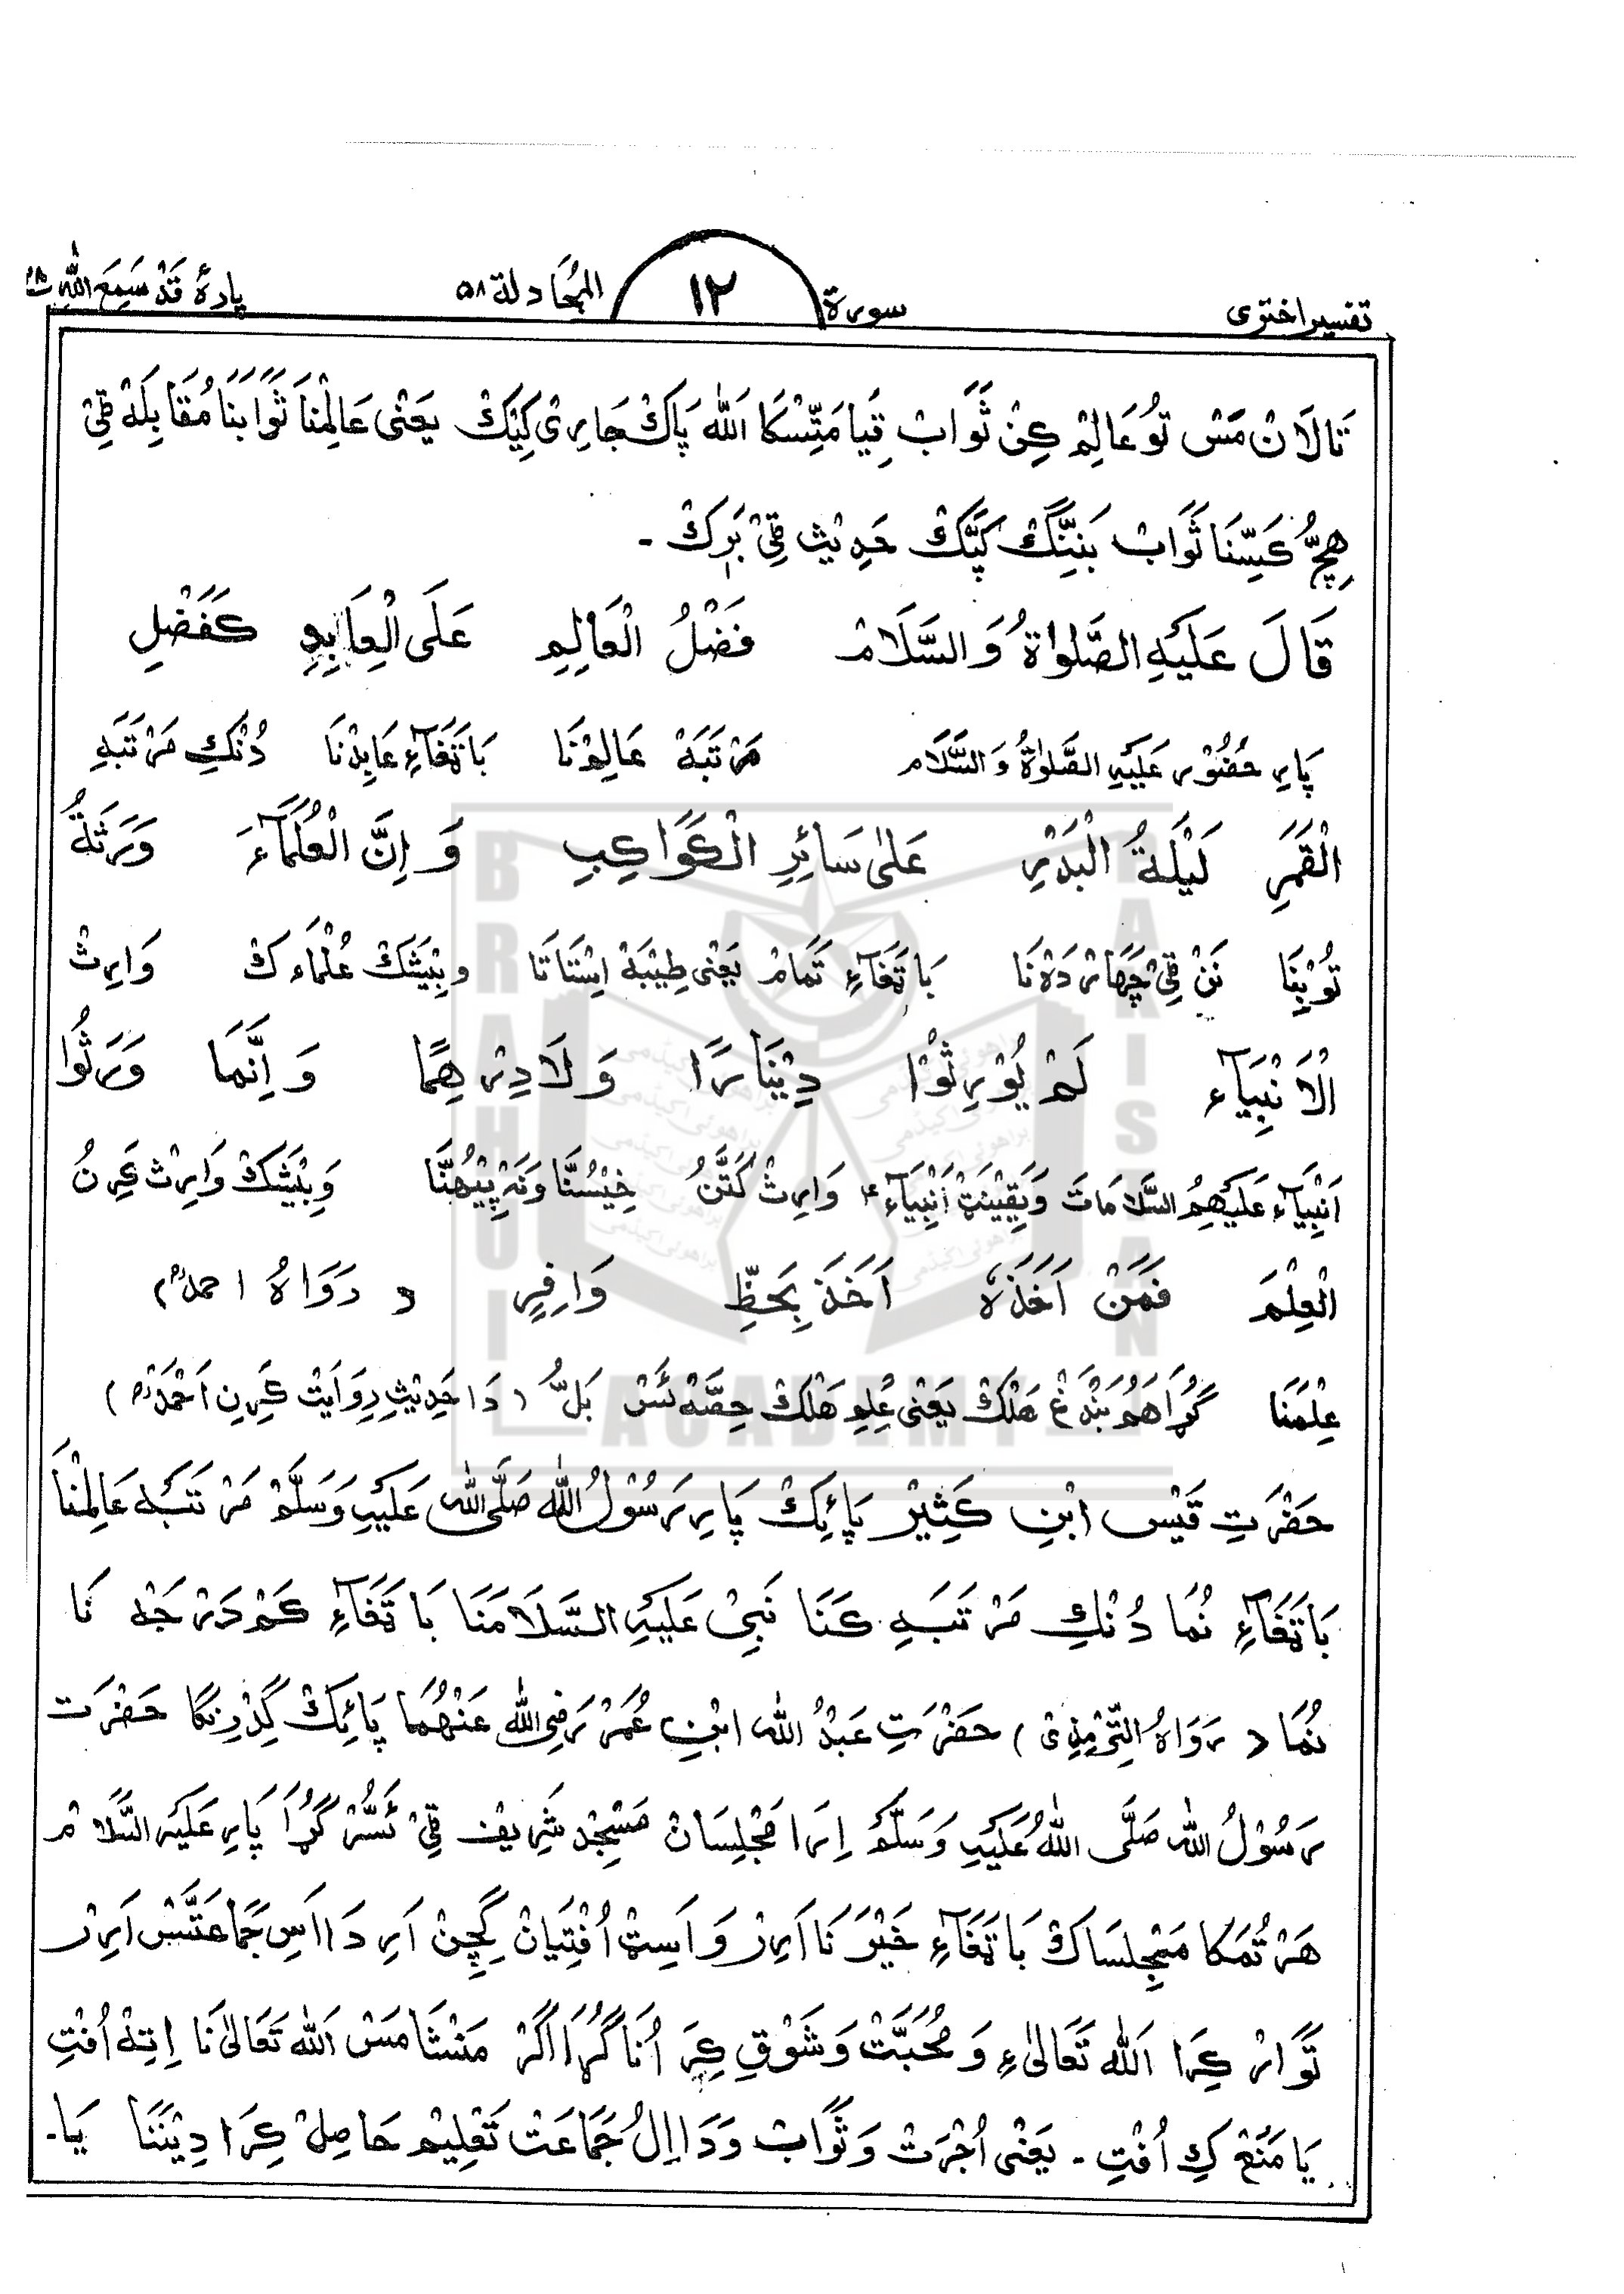 تفسیر اختری سورة ١٢ المجادلة ٥٨ پارهٔ قَدْ سَمِعَ اللهُ ٢٨
تَالَانْ مَسْ تو عَالِمْ كِنْ ثَوَابْ قِیامَتِّسْکَا اَللّٰه پَاكْ جَارِیْ كِیْكْ یَعْنٰی عَالِمْنَا ثَوَابَنَا مُقَابِلَهْ قِیْ
هِچُّ كَسِّنَا ثَوَابْ بَنِنِّگْ كَپَّكْ حَدِیْث قِیْ بَرِكْ -
قَالَ عَلَیْهِ الصَّلوٰةُ وَالسَّلَامْ فَضْلُ الْعَالِمِ عَلَی الْعَابِدِ كَفَضْلِ
پَارِ حضُوْر عَلَیْهِ الصَّلوٰةُ وَالسَّلَام مَرْتَبَهْ عَالِمْنَا بَاتَغَآءِ عَابِدْنَا دُنْكِ مَرْتَبَهِ
الْقَمَرِ لَیْلَةُ الْبَدْرِ عَلٰی سَائِرِ الْكَوَاكِبِ وَ اِنَّ الْعُلَمَآءَ وَرَثَةُ
تُوْبِنَا نَنْ قِیْ چَهَارْدَهْ نَا بَاتَغَآءِ تَمَامْ یَعْنٰی طِیْبَهْ اِسْتَاتَا وبِیْشَكْ عُلْمَاءكْ وَارِثْ
الْاَنْبِیَآء لَمْ یُوْرِثُوْا دِیْنَارًا وَلَادِرْهَمًا وَ اِنَّمَا وَرَثُوا
اَنْبِیَآءِ عَلَیْهِمُ السَّلَامَاتَ وَیَقِیْنَتْ اَنْبِیَآءِ وَارِثْ كَتَّنُ خِیْسُنَّا وَنَهْ پِیْهُنَّا وَبِیْشَكْ وَارِثْ كَرِنُ
الْعِلْمَ فَمَنْ اَخَذَهٗ اَخَذَ بِحَظِّ وَافِرٍ ( رَوَاهُ احمد )
عِلْمَنَا گُڑَا هَمُ بَنْدَغْ هَلْكْ یَعْنٰی عِلْمِ هَلْكْ حِصَّهْ ئَسْ بَلُّ ( دَا حَدِیْثِ رِوَایَتْ كَرِنِ اَحْمَدْ )
حَضْرَتِ قَیْس ابْنِ كَثِیْرْ پَائِكْ پَارِ رَسُوْلُ اللّٰه صَلَّی اللّٰه عَلَیْهِ وَسَلَّمْ مَرْتَبَه عَالِمْنَا
بَاتَغَآءِ نُمَا دُنْكِ مَرْتَبَهِ كَنَا نَبِیْ عَلَیْهِ السَّلَامَنَا بَاتَغَآءِ كَمْ دَرْجَهْ نَا
نُمَا ( رَوَاهُ التِّرْمِذِیْ ) حَضْرَتِ عَبْدُ اللّٰه ابْنِ عُمَرْ رَضِیَ اللّٰه عَنْهُمَا پَائِكْ گِدْرِنْگَا حَضْرَت
رَسُوْلُ اللّٰه صَلَّی اللّٰهُ عَلَیْهِ وَسَلَّمْ اِرَا مَجْلِسَانْ مَسْجِدْ شَرِیْف قِیْ ئَسُّرْ گُڑَا پَارِ عَلَیْهِ السَّلَامْ
هَرْتُمَكَا مَجْلِسَاكْ بَاتَغَآءِ خَیْرَ نَا اَرِرْ وَ اَسِتْ اُفْتِیَانْ گِچِنْ اَرِ دَا اَسِ جَمَاعَتَّسْ اَرِرْ
تَوَارْ كِرَا اَللّٰه تَعَالٰیءِ وَ مُحَبَّتْ وَشَوْقِ كِرَ اُنَا گُڑَا اَگَرْ مَنْشَا مَسْ اَللّٰه تَعَالٰی نَا اِتِهْ اُفْتِ
یَا مَنَعْ كِ اُفْتِ - یَعْنٰی اُجْرَتْ وَ ثَوَابْ وَدَا اِلُ جَمَاعَتْ تَعْلِیْم حَاصِلْ كِرَا دِیْنَنَا یَا -
BRAHUI ACADEMY PAKISTAN